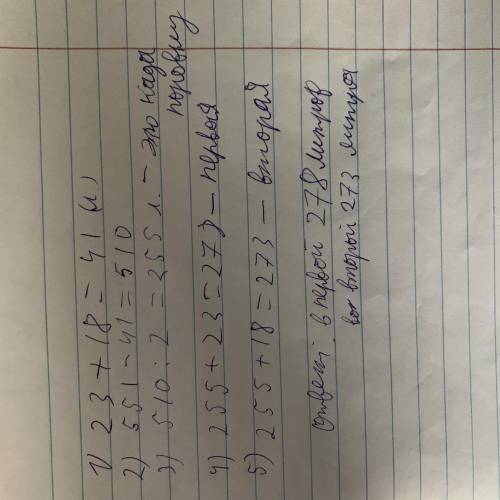 1) 23 + 18 = 41 (л)
2) 551 - 41 = 510
3) 510 : 2 = 255 л. - это када
поровну
4) 255 + 23 = 278 - первая
5) 255 + 18 = 273 - вторая
Ответ: в первой 278 литров
во второй 273 литра